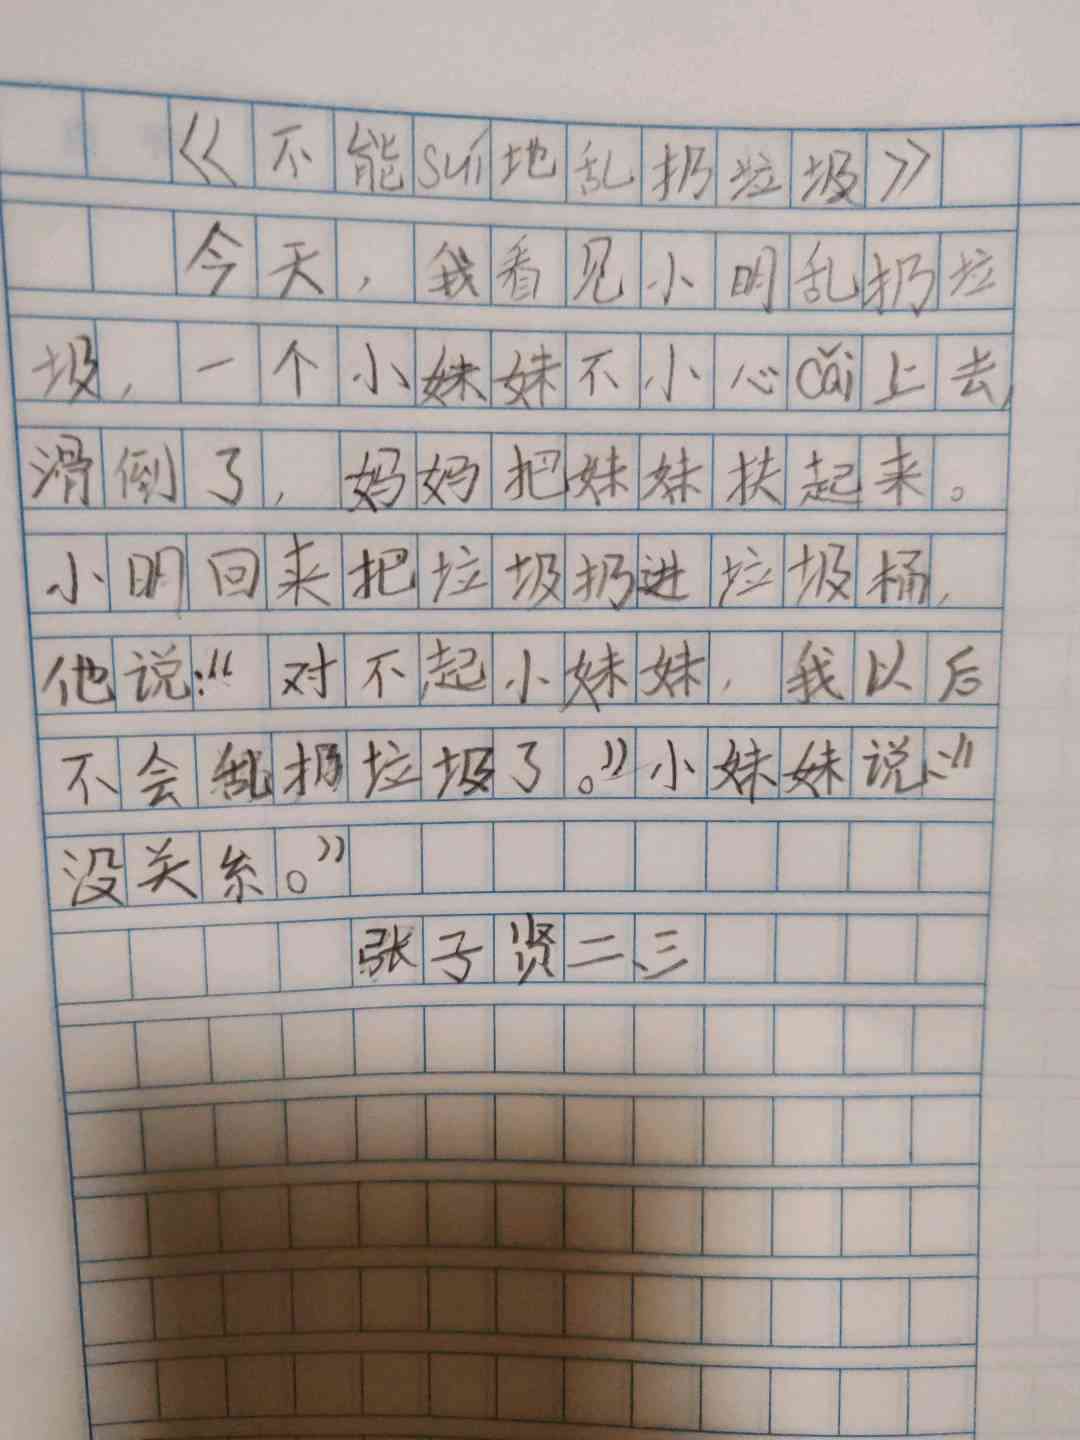 《不能suí地乱扔垃圾》
今天，我看见小明乱扔垃
圾，一个小妹妹不小心cǎi上去，
滑倒了，妈妈把妹妹扶起来。
小明回来把垃圾扔进垃圾桶，
他说：“对不起小妹妹，我以后
不会乱扔垃圾了。”小妹妹说：“
没关系。”
张子贤二、三